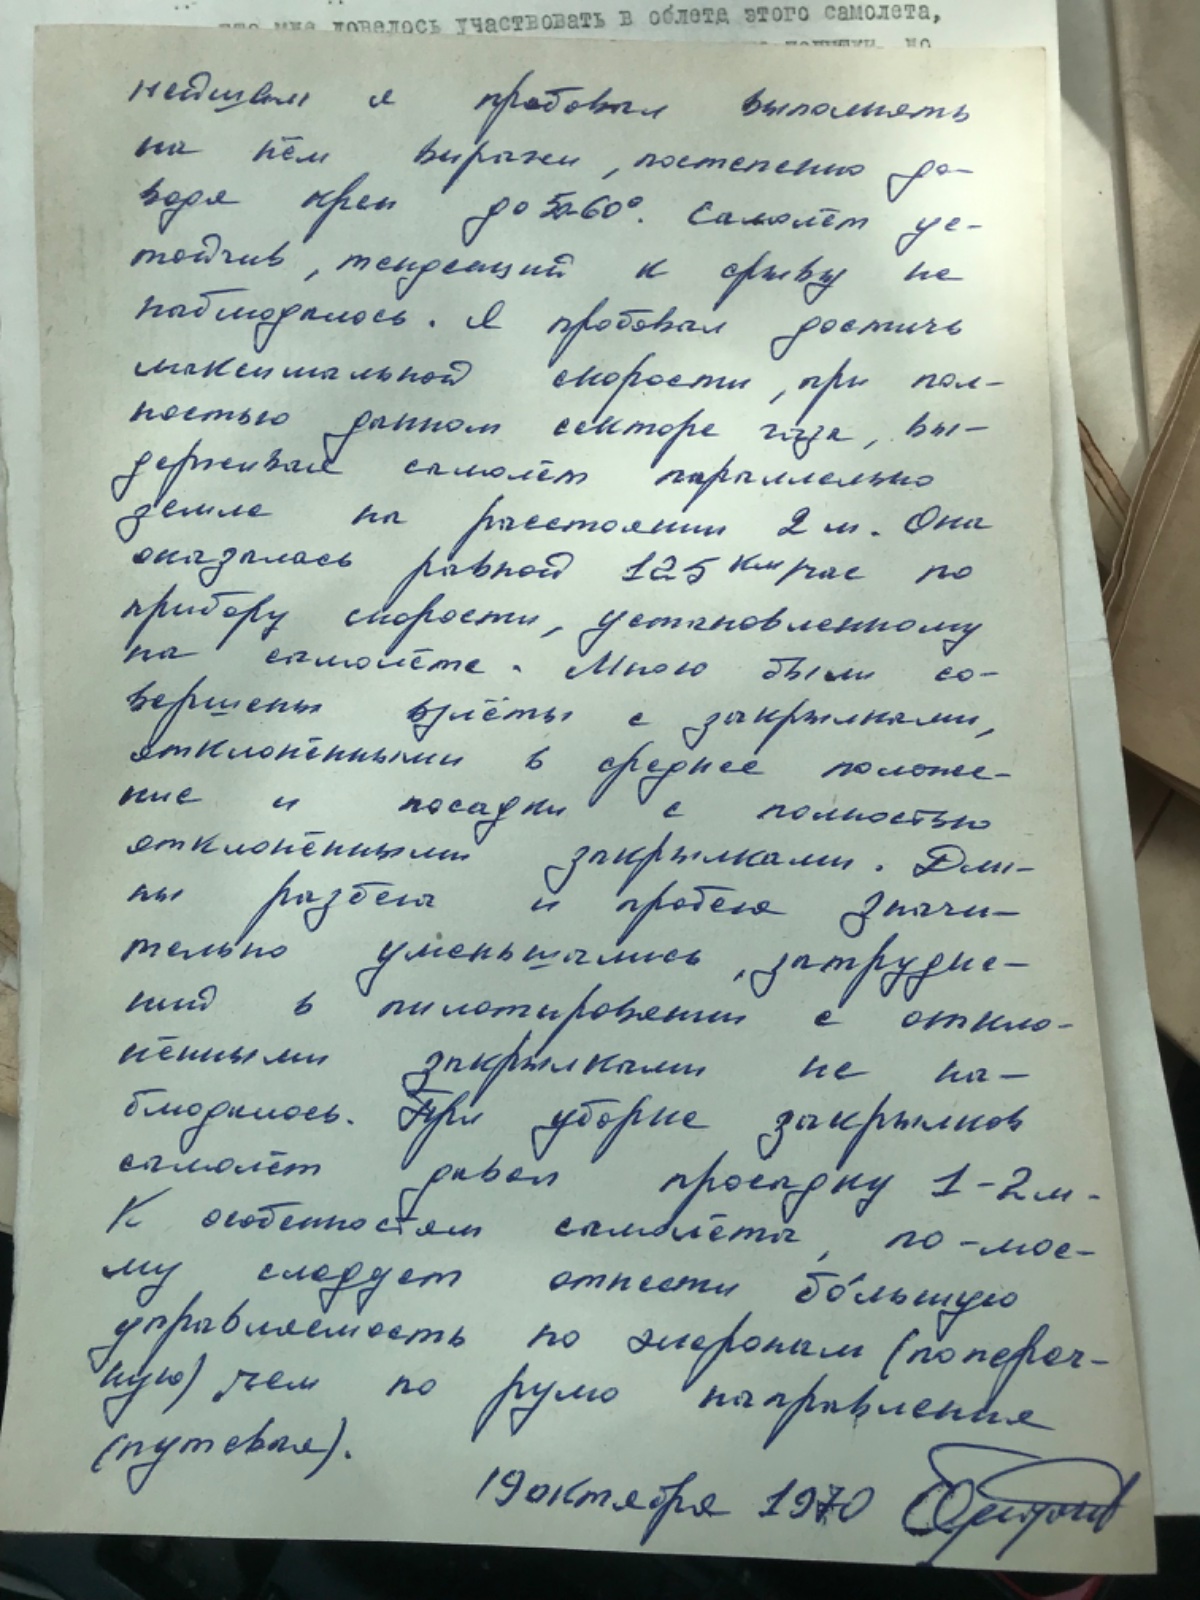 что мне довелось участвовать в облете этого самолета,
нейшем я пробовал выполнять
на нём виражи, постепенно до-
водя крен до 50-60°. Самолёт ус-
тойчив, тенденций к срыву не
наблюдалось. Я пробовал достичь
максимальной скорости, при пол-
ностью данном секторе газа, вы-
держивая самолёт параллельно
земле на расстоянии 2 м. Она
оказалась равной 125 км/час по
прибору скорости, установленному
на самолёте. Мною были со-
вершены взлёты с закрылками,
отклонёнными в среднее положе-
ние и посадки с полностью
отклонёнными закрылками. Дли-
ны разбега и пробега значи-
тельно уменьшались, затрудне-
ний в пилотировании с откло-
нёнными закрылками не на-
блюдалось. При уборке закрылков
самолёт давал просадку 1-2 м.
К особенностям самолёта, по-мое-
му следует отнести бо́льшую
управляемость по элеронам (попереч-
ную) чем по рулю направления
(путевая).
19 октября 1970